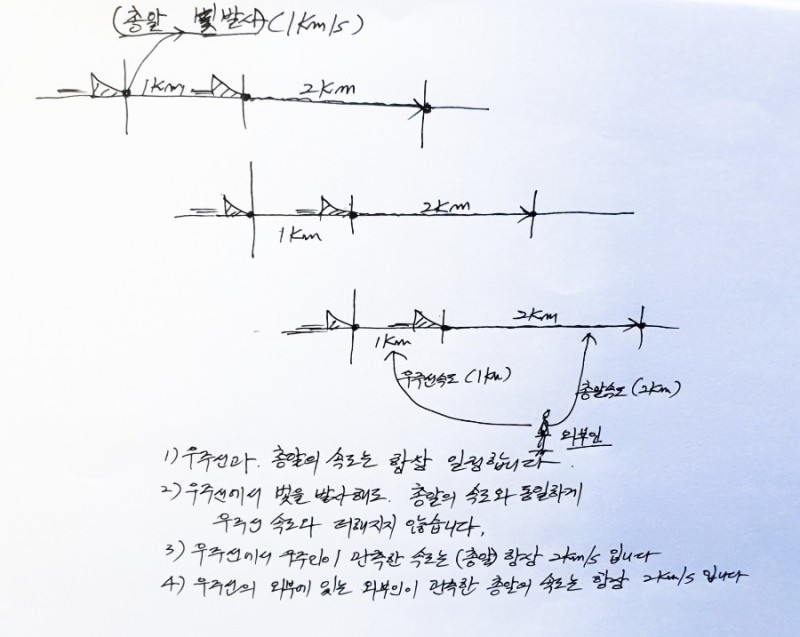 (총알 빛 발사) (1Km/s)
1Km 2Km
2Km
1Km
2Km
1Km
우주선속도 (1Km)
총알속도 (2Km)
외부인
1) 우주선과. 총알의 속도는 항상 일정합니다.
2) 우주선에서 빛을 발사해도. 총알의 속도와 동일하게
우주선 속도와 더해지지 않습니다.
3) 우주선에서 우주인이 관측한 속도는 (총알) 항상 2Km/s 입니다
4) 우주선의 외부에 있는 외부인이 관측한 총알의 속도는 항상 2Km/s 입니다